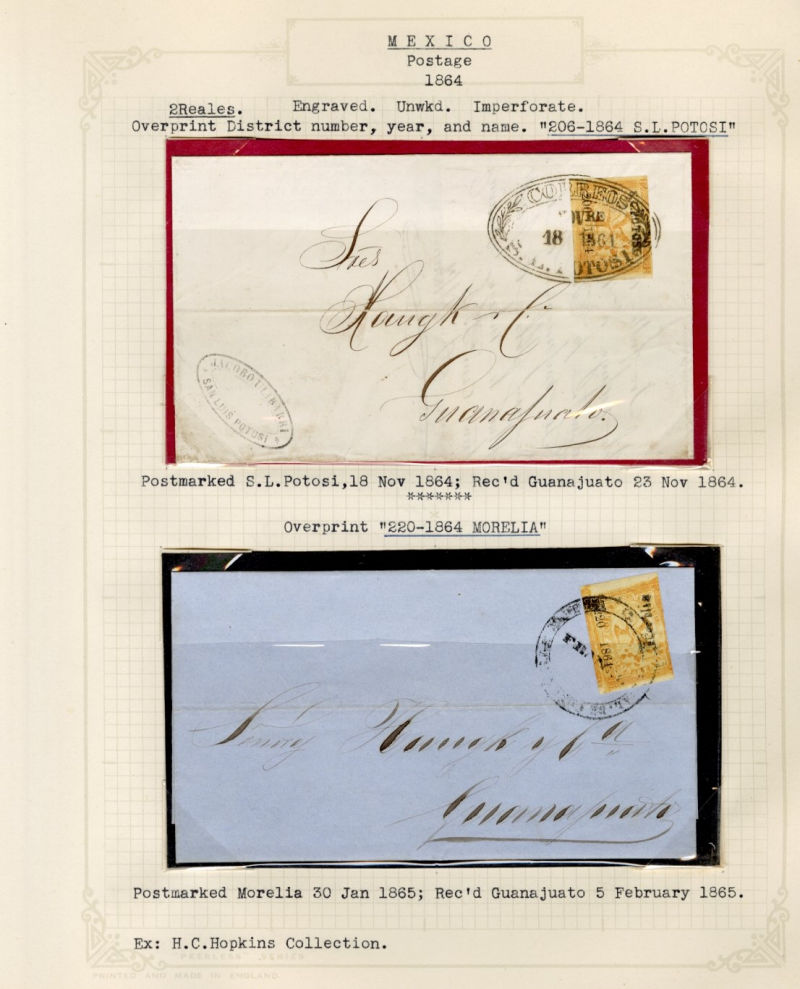 MEXICO
Postage
1864
2Reales. Engraved. Unwkd. Imperforate.
Overprint District number, year, and name. "206-1864 S.L.POTOSI"
CORREOS
18 1864
S.L. POTOSI
POTOSI
Sres
Haugk y C.
Guanajuato.
JACOBO
SAN LUIS POTOSI
Postmarked S.L.Potosi,18 Nov 1864; Rec'd Guanajuato 23 Nov 1864.
*******
Overprint "220-1864 MORELIA"
220 1864
Haugk y Cª
Guanajuato
Postmarked Morelia 30 Jan 1865; Rec'd Guanajuato 5 February 1865.
Ex: H.C.Hopkins Collection.
"PEERLESS" SERIES
PRINTED AND MADE IN ENGLAND